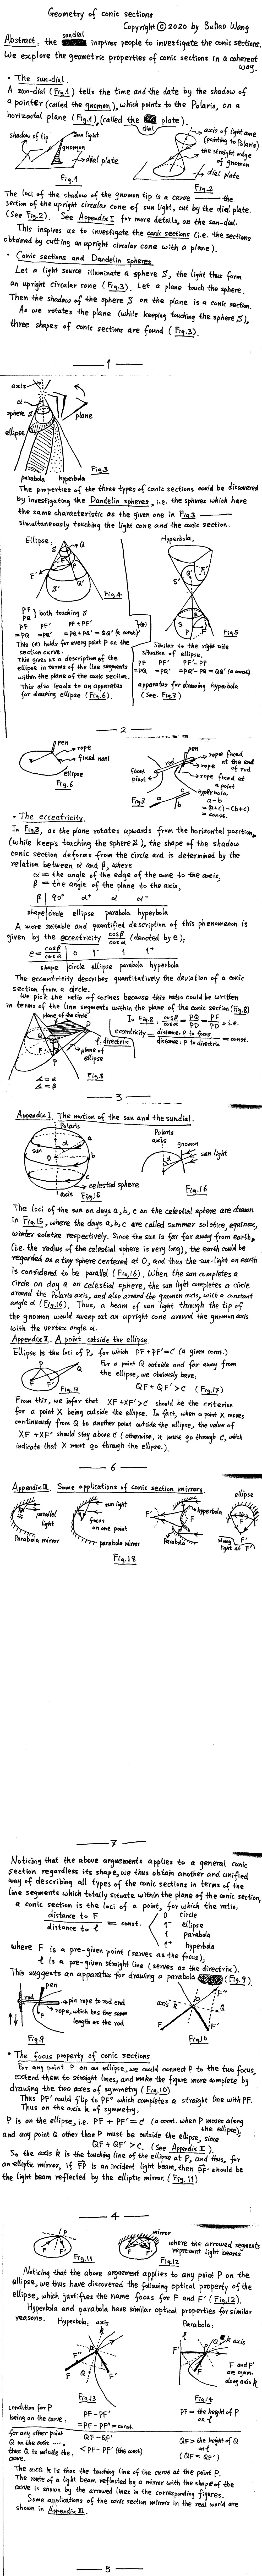 Geometry of conic sections
Copyright © 2020 by Buliao Wang
Abstract: the sundial inspires people to investigate the conic sections.
We explore the geometric properties of conic sections in a coherent way.
• The sun-dial.
A sun-dial (Fig.1) tells the time and the date by the shadow of
a pointer (called the gnomon), which points to the Polaris, on a
horizontal plane (Fig.1), (called the dial plate).
shadow of tip
sun light
gnomon
dial plate
Fig.1
axis of light cone
(pointing to Polaris)
the straight edge
of gnomon
dial plate
Fig.2
The loci of the shadow of the gnomon tip is a curve — the
section of the upright circular cone of sun light, cut by the dial plate.
(See Fig.2). See Appendix I for more details, on the sun-dial.
This inspires us to investigate the conic sections (i.e. the sections
obtained by cutting an upright circular cone with a plane).
• Conic sections and Dandelin spheres
Let a light source illuminate a sphere S, the light thus form
an upright circular cone (Fig.3). Let a plane touch the sphere.
Then the shadow of the sphere S on the plane is a conic section.
As we rotates the plane (while keeping touching the sphere S),
three shapes of conic sections are found (Fig.3).
1
axis
α
sphere S
plane
ellipse
Fig.3
parabola hyperbola
The properties of the three types of conic sections could be discovered
by investigating the Dandelin spheres, i.e. the spheres which have
the same characteristic as the given one in Fig.3 —
simultaneously touching the light cone and the conic section.
Ellipse:
Fig.4
PF
PQ
both touching S
PF PF' PF+PF'
=PQ =PQ' =PQ+PQ'=QQ' (a const.)
(*)
This (*) holds for every point P on the
section curve.
This gives us a description of the
ellipse in terms of the line segments
within the plane of the conic section.
This also lends to an apparatus
for drawing ellipse (Fig.6).
Hyperbola:
Fig.5
Similar to the right side
situation of ellipse.
PF PF' PF'-PF
=PQ =PQ' =PQ'-PQ=QQ' (a const)
apparatus for drawing hyperbola
(See. Fig.7)
2
pen
rope
fixed nail
ellipse
Fig.6
pen
rope fixed
at the end
of rod
rod
rope
rope fixed at
a point
fixed
point
hyperbola
Fig.7
a-b
=(a+c)-(b+c)
=const.
• The eccentricity.
In Fig.3, as the plane rotates upwards from the horizontal position,
(while keeps touching the sphere S), the shape of the shadow
conic section deforms from the circle and is determined by the
relation between α and β, where
α = the angle of the edge of the cone to the axis;
β = the angle of the plane to the axis,
β 90° α⁺ α α⁻
shape circle ellipse parabola hyperbola
A more suitable and quantified description of this phenomenon is
given by the eccentricity cosβ/cosα (denoted by e);
e = cosβ/cosα 0 1⁻ 1 1⁺
shape circle ellipse parabola hyperbola
The eccentricity describes quantitatively the deviation of a conic
section from a circle.
We pick the ratio of cosines because this ratio could be written
in terms of the line segments within the plane of the conic section (Fig.8)
plane of the circle
In Fig.8, cosβ/cosα = PQ/PD = PF/PD, i.e.
eccentricity = distance: P to focus / distance: P to directrix = const.
l: directrix
plane of
ellipse
Fig.8
∡ = α
∡ = β
3
Appendix I. The motion of the sun and the sundial.
Polaris
sun
celestial sphere
axis
Fig.15
Polaris
axis
gnomon
sun light
Fig.16
The loci of the sun on days a, b, c on the celestial sphere are drawn
in Fig.15, where the days a, b, c are called summer solstice, equinox,
winter solstice respectively. Since the sun is far away from earth,
(i.e. the radius of the celestial sphere is very long), the earth could be
regarded as a tiny sphere centered at O, and thus the sun-light on earth
is considered to be parallel (Fig.16). When the sun completes a
circle on day a on celestial sphere, the sun light completes a circle
around the Polaris axis, and also around the gnomon axis, with a constant
angle α (Fig.16). Thus, a beam of sun light through the tip of
the gnomon would sweep out an upright cone around the gnomon axis
with the vertex angle α.
Appendix II. A point outside the ellipse.
Ellipse is the loci of P, for which PF+PF'=C (a given const.)
For a point Q outside and far away from
the ellipse, we obviously have,
QF+QF'>C (Fig.17)
Fig.17
From this, we infer that XF+XF'>C should be the criterion
for a point X being outside the ellipse. In fact, when a point X moves
continuously from Q to another point outside the ellipse, the value of
XF+XF' should stay above C (otherwise, it must go through C, which
indicate that X must go through the ellipse.).
6
Appendix III. Some applications of conic section mirrors.
parallel
light
Parabola mirror
sun light
focus
on one point
parabola mirror
hyperbola
Parabola
ellipse
strong
light at F'
Fig.18
7
Noticing that the above arguements applies to a general conic
section regardless its shape, we thus obtain another and unified
way of describing all types of the conic sections in terms of the
line segments which totally situate within the plane of the conic section,
a conic section is the loci of a point, for which the ratio:
distance to F / distance to l = const.
0 circle
1⁻ ellipse
1 parabola
1⁺ hyperbola
where F is a pre-given point (serves as the focus);
l is a pre-given straight line (serves as the directrix).
This suggests an apparatus for drawing a parabola (Fig.9).
pen
pin rope to rod end
rope, which has the same
length as the rod
Fig.9
axis k
Fig.10
• The focus property of conic sections
For any point P on an ellipse, we could connect P to the two focus,
extend them to straight lines, and make the figure more complete by
drawing the two axes of symmetry (Fig.10)
Thus PF' could flip to PF'' which completes a straight line with PF.
Thus on the axis k of symmetry:
P is on the ellipse, i.e. PF+PF'=C (a const. when P moves along
the ellipse);
and any point Q other than P must be outside the ellipse, since
QF+QF'>C. (See Appendix II).
So the axis k is the touching line of the ellipse at P, and thus, for
an elliptic mirror, if FP is an incident light beam, then PF' should be
the light beam reflected by the elliptic mirror. (Fig.11)
4
Fig.11
mirror
Fig.12
where the arrowed segments
represent light beams
Noticing that the above argeement applies to any point P on the
ellipse, we thus have discovered the following optical property of the
ellipse, which justifies the name focus for F and F' (Fig.12).
Hyperbola and parabola have similar optical properties for similar
reasons.
Hyperbola:
axis k
Fig.13
Parabola:
axis k
F and F'
are symm.
along axis k
Fig.14
condition for P
being on the curve:
PF-PF'
=PF-PF''=const.
PF = the height of P
on l
for any other point
Q on the axis ....,
thus Q is outside the
curve.
QF-QF'
<PF-PF' (the const)
QF > the height of Q
on l
(QF=QF')
The axis k is thus the touching line of the curve at the point P.
The route of a light beam reflected by a mirror with the shape of the
curve is shown by the arrowed lines in the corresponding figures.
Some applications of the conic section mirrors in the real world are
shown in Appendix III.
5